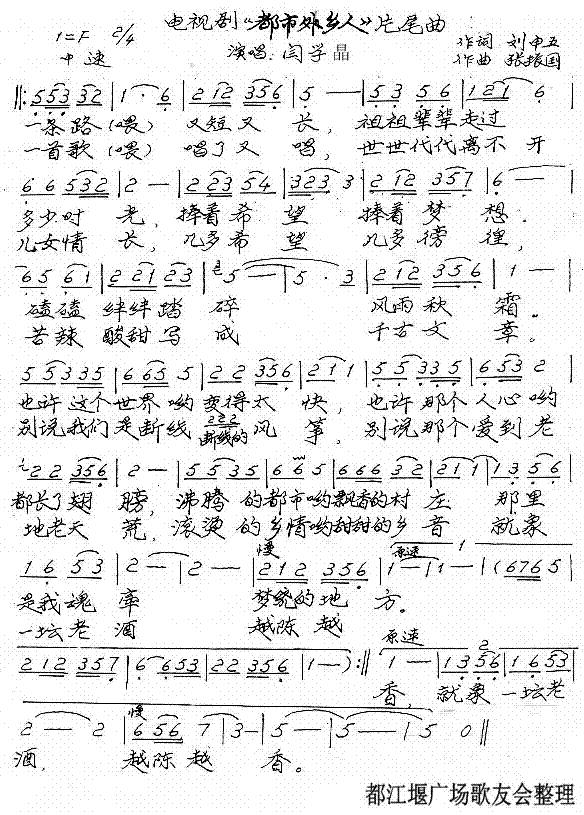 电视剧《都市外乡人》片尾曲
1=F 2/4
中速
演唱:闫学晶
作词 刘申五
作曲 张振国
‖: 553 32 | 1· 6 | 212 356 | 5 — | 53 56 | 121 6 |
一条路(喂) 又短又 长, 祖祖辈辈走过
一首歌(喂) 唱了又 唱, 世世代代离不 开
6 6 532 | 2 — | 2 23 54 | 323 3 | 212 357 | 6 — |
多少时 光, 捧着希 望 捧着梦 想.
儿女情 长, 几多希 望 几多徬 徨,
65 61 | 2 21 23 | 5 — | 5 · 3 | 212 356 | 1 — |
磕磕 绊绊踏 碎 风雨秋 霜。
苦辣 酸甜写 成 千古文 章。
55335 | 665 5 | 2 2 356 | 21 1 | 55 335 | 653 2 |
也许这个世界哟变得太 快, 也许那个人心哟
222
别说我们是断线断线的风 筝, 别说那个爱到老
2 2 356 | 2 — | 55535 | 665 | 666 32 | 211 | 13 56 |
都长了翅 膀, 沸腾 的都市哟飘香的村 庄 那里
地老天 荒, 滚烫 的乡情哟甜甜的乡 音 就象
慢 原速 1
16 53 | 2 — | 2 — | 212 356 | 1 — | 1 — | (6765 |
是我魂 牵 梦绕的地 方。
一坛老 酒 越陈越
原速 2
212 357 | 6 653 | 22 356 | 1 —) :‖ 1 — | 13 56 | 16 53 |
香, 就象一坛老
慢
2 — 2 | 656 7 | 3 — | 5 — | 5 — | 5 0 ‖
酒, 越陈越 香。
都江堰广场歌友会整理